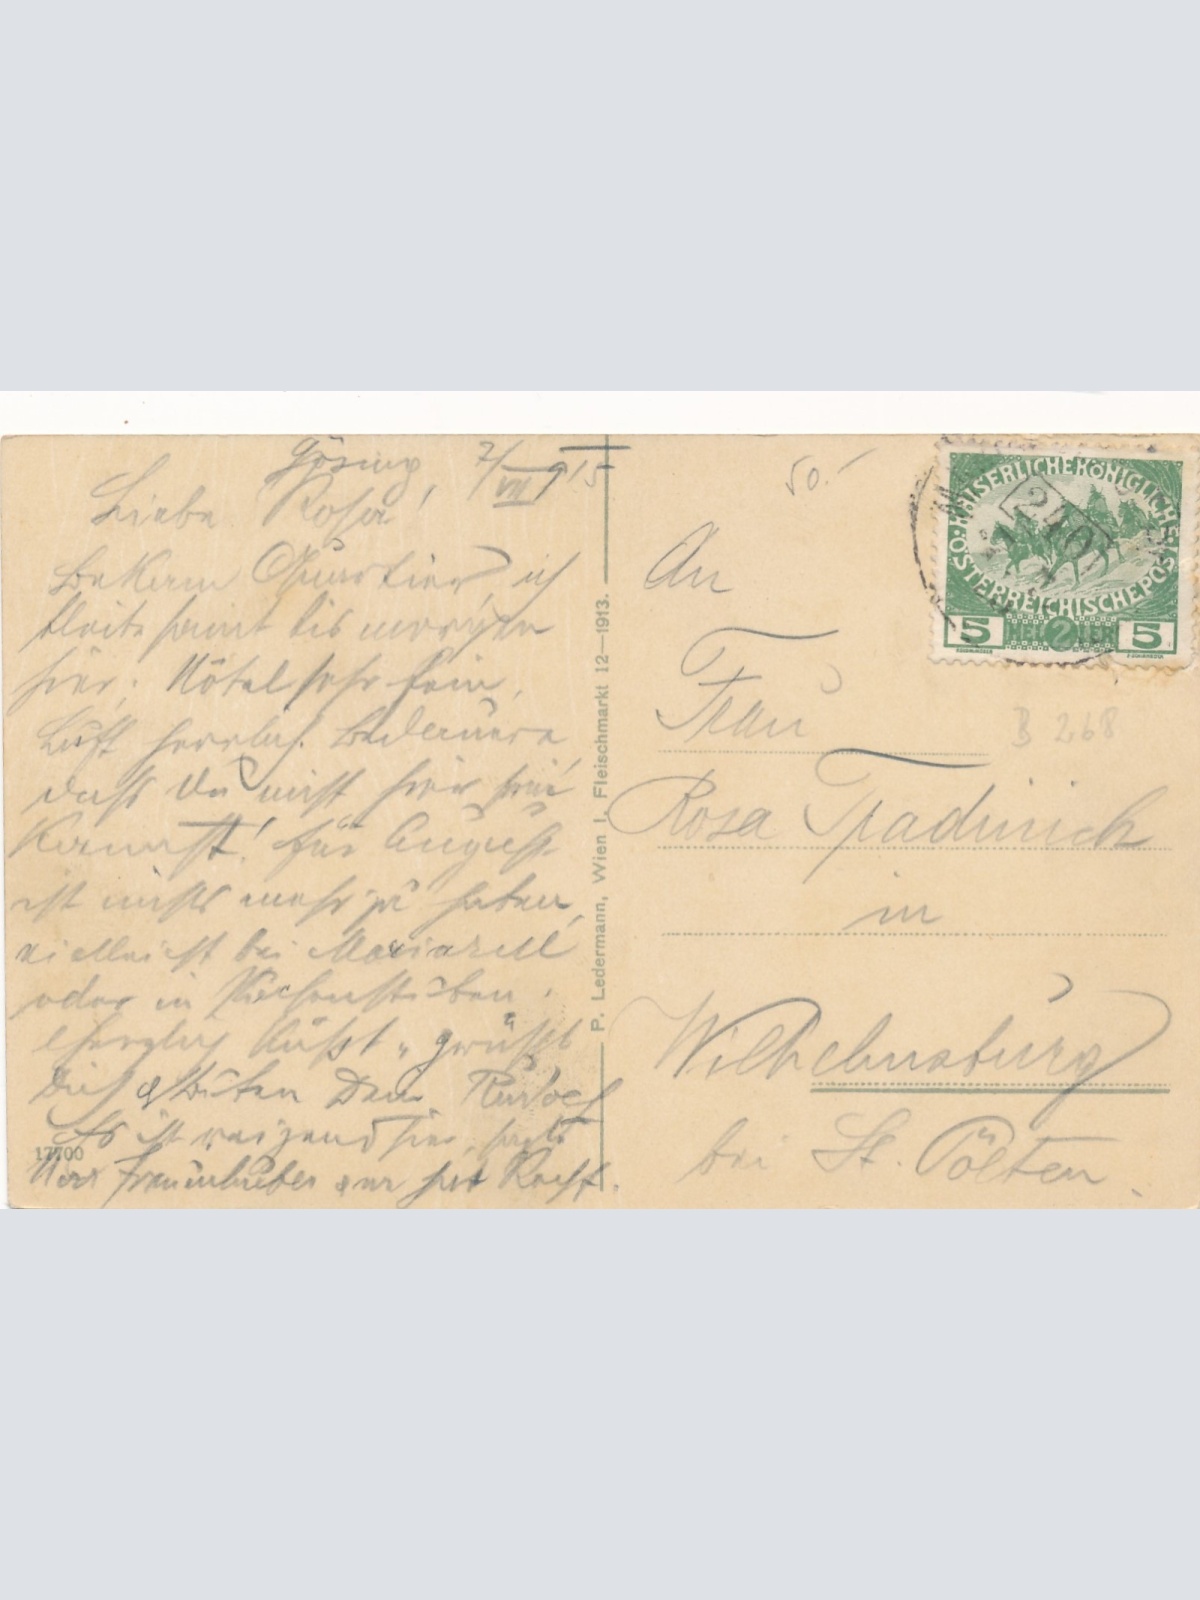 Gösing, 7/VII 915
Liebe Rosa!
Bekam Quartier, ich
bleibe samt bis morgen
hier. Hôtel sehr fein,
Luft herrlich. Bedauere
dass Du nicht hier sein
kannst! Für August
ist nichts mehr zu haben,
vielleicht bei Mariazell
oder in
Herzlich küsst u. grüßt
Dich Dein Rudolf
Es ist reizend hier,
Herr hat Recht.
17700
P. Ledermann, Wien I. Fleischmarkt 12—1913.
50.-
KAISERLICHE KÖNIGLICHE
ÖSTERREICHISCHE POST
5 HELLER 5
240
2
B 268
An
Frau
Rosa Tradinick
in
Wilhelmsburg
bei St. Pölten.